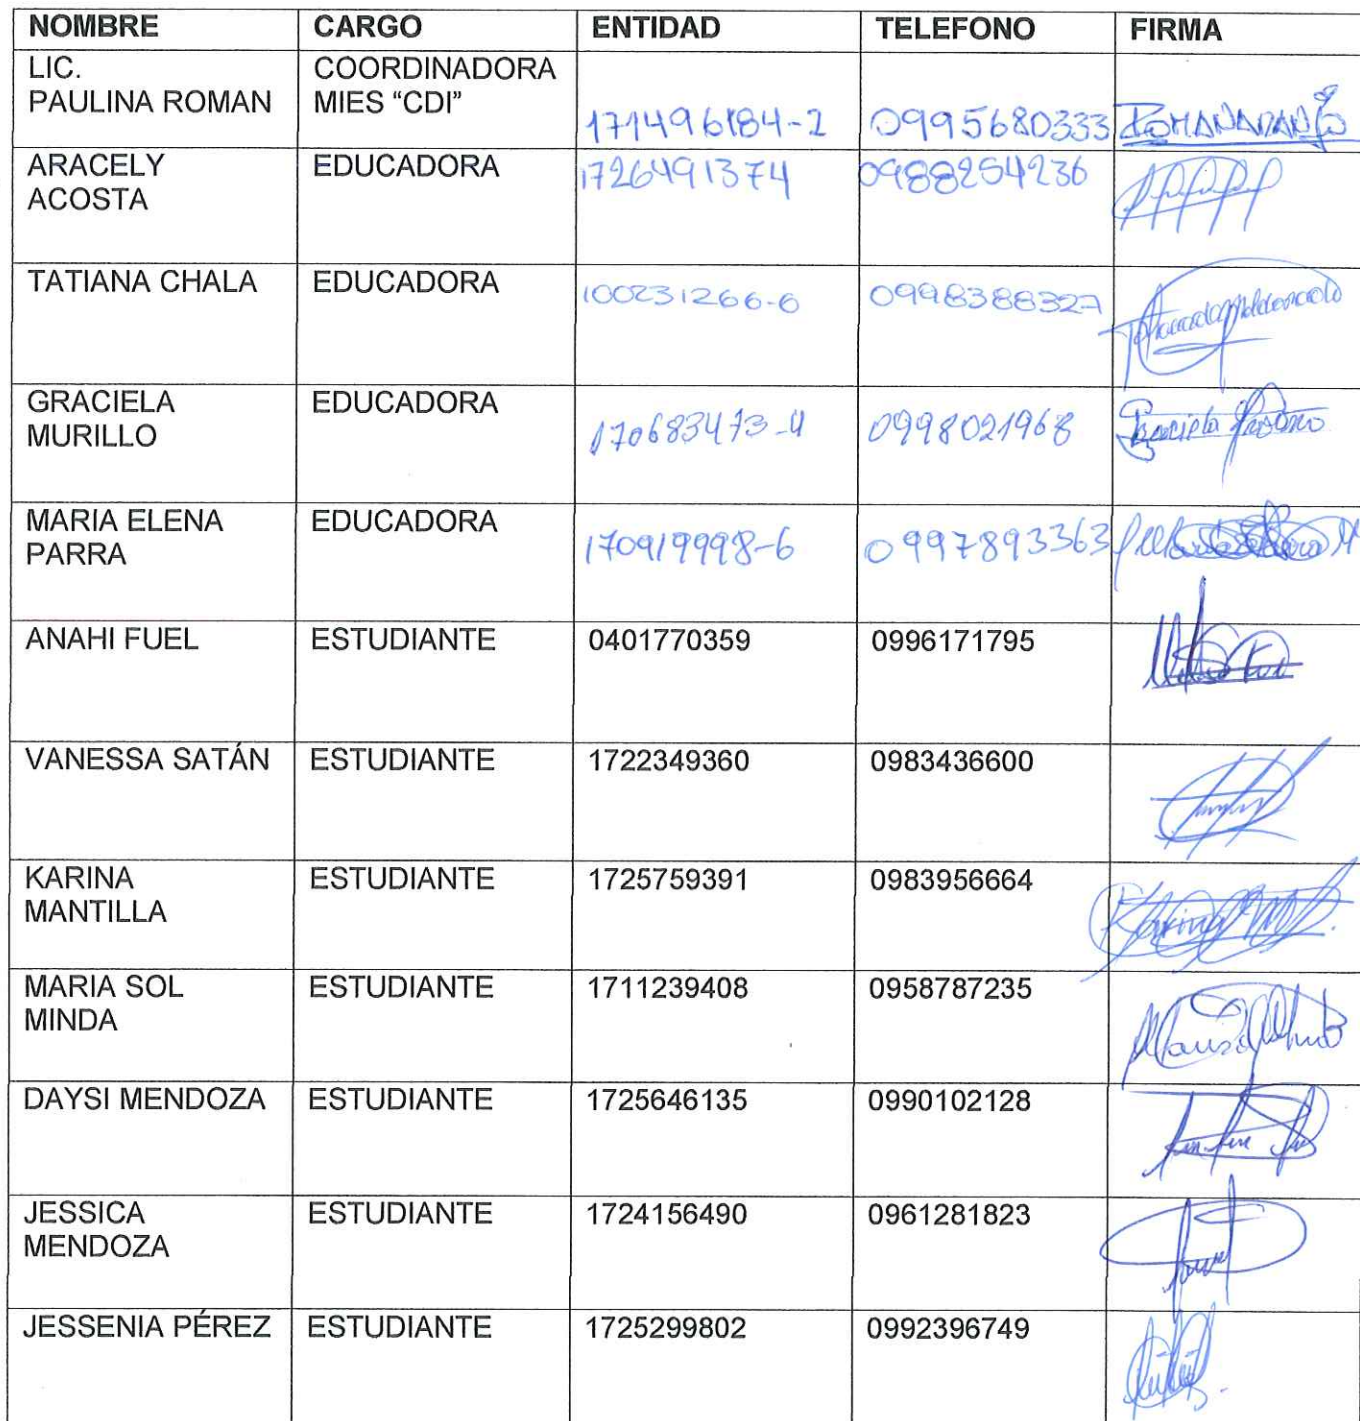 NOMBRE CARGO ENTIDAD TELEFONO FIRMA
LIC. COORDINADORA
PAULINA ROMAN MIES “CDI” 171496184-2 0995680333
ARACELY EDUCADORA 1726491374 0988254236
ACOSTA
TATIANA CHALA EDUCADORA 100231266-6 0998388327
GRACIELA EDUCADORA 170683473-4 0998021968
MURILLO
MARIA ELENA EDUCADORA 170919998-6 0997893363
PARRA
ANAHI FUEL ESTUDIANTE 0401770359 0996171795
VANESSA SATÁN ESTUDIANTE 1722349360 0983436600
KARINA ESTUDIANTE 1725759391 0983956664
MANTILLA
MARIA SOL ESTUDIANTE 1711239408 0958787235
MINDA
DAYSI MENDOZA ESTUDIANTE 1725646135 0990102128
JESSICA ESTUDIANTE 1724156490 0961281823
MENDOZA
JESSENIA PÉREZ ESTUDIANTE 1725299802 0992396749